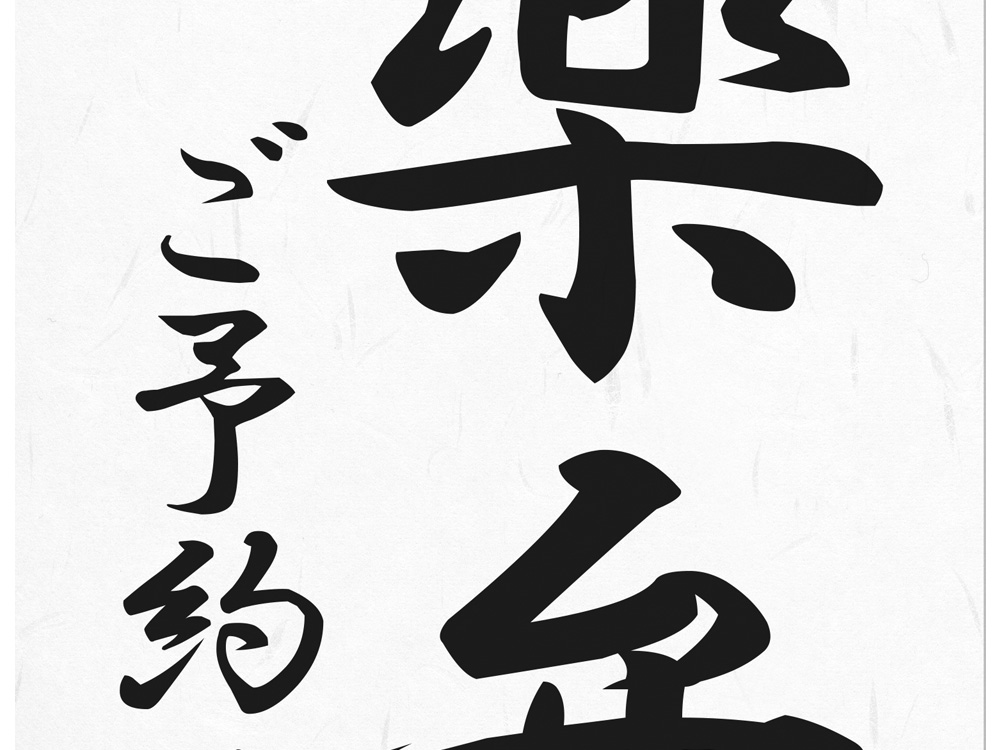 楽
ご予約